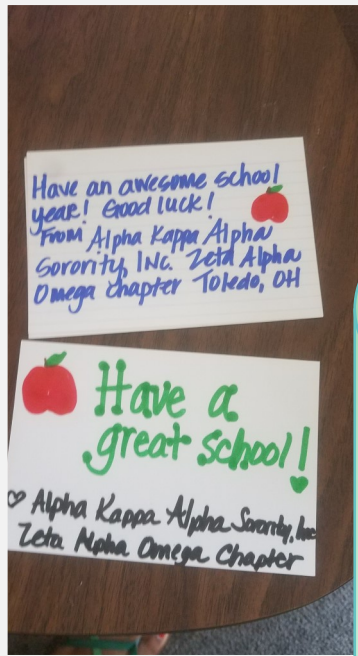 Have an awesome school
year! Good luck!
From Alpha Kappa Alpha
Sorority, INC. Zeta Alpha
Omega Chapter Toledo, OH
Have a
great school!
Alpha Kappa Alpha Sorority, Inc
Zeta Alpha Omega Chapter